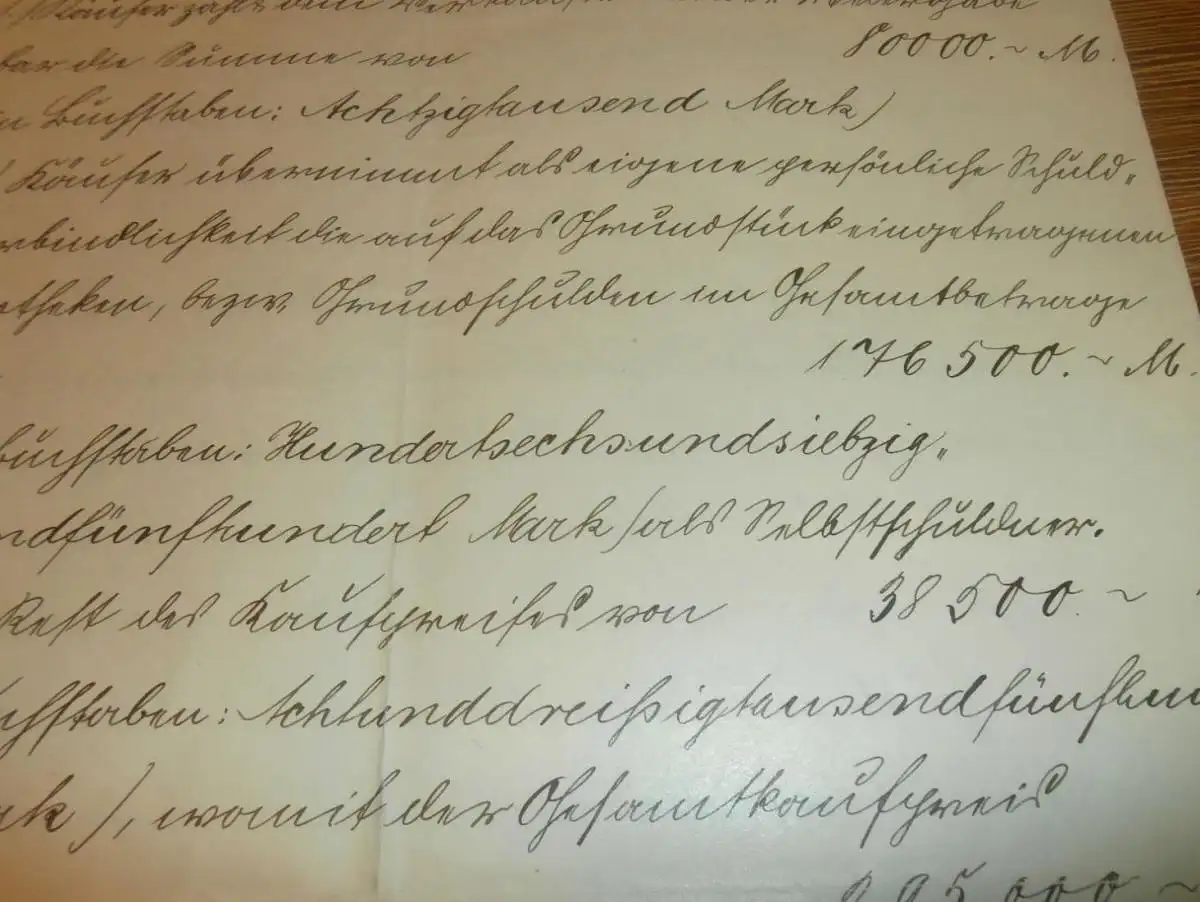 Käufer zahlt dem Verkäufer
bar die Summe von 80000.~ M.
n Buchstaben: Achtzigtausend Mark)
Käufer übernimmt als eigene persönliche Schuld„
rbindlichkeit die auf das Grundstück eingetragenen
otheken, bezw. Grundschulden im Gesamtbetrage
176 500.~ M.
Buchstaben: Hundertsechsundsiebzig„
ndfünfhundert Mark) als Selbstschuldner.
Rest des Kaufpreises von 38 500.~
chstaben: Achtunddreißigtausendfünfhun
rk), womit der Gesamtkaufpreis
295 000 ~